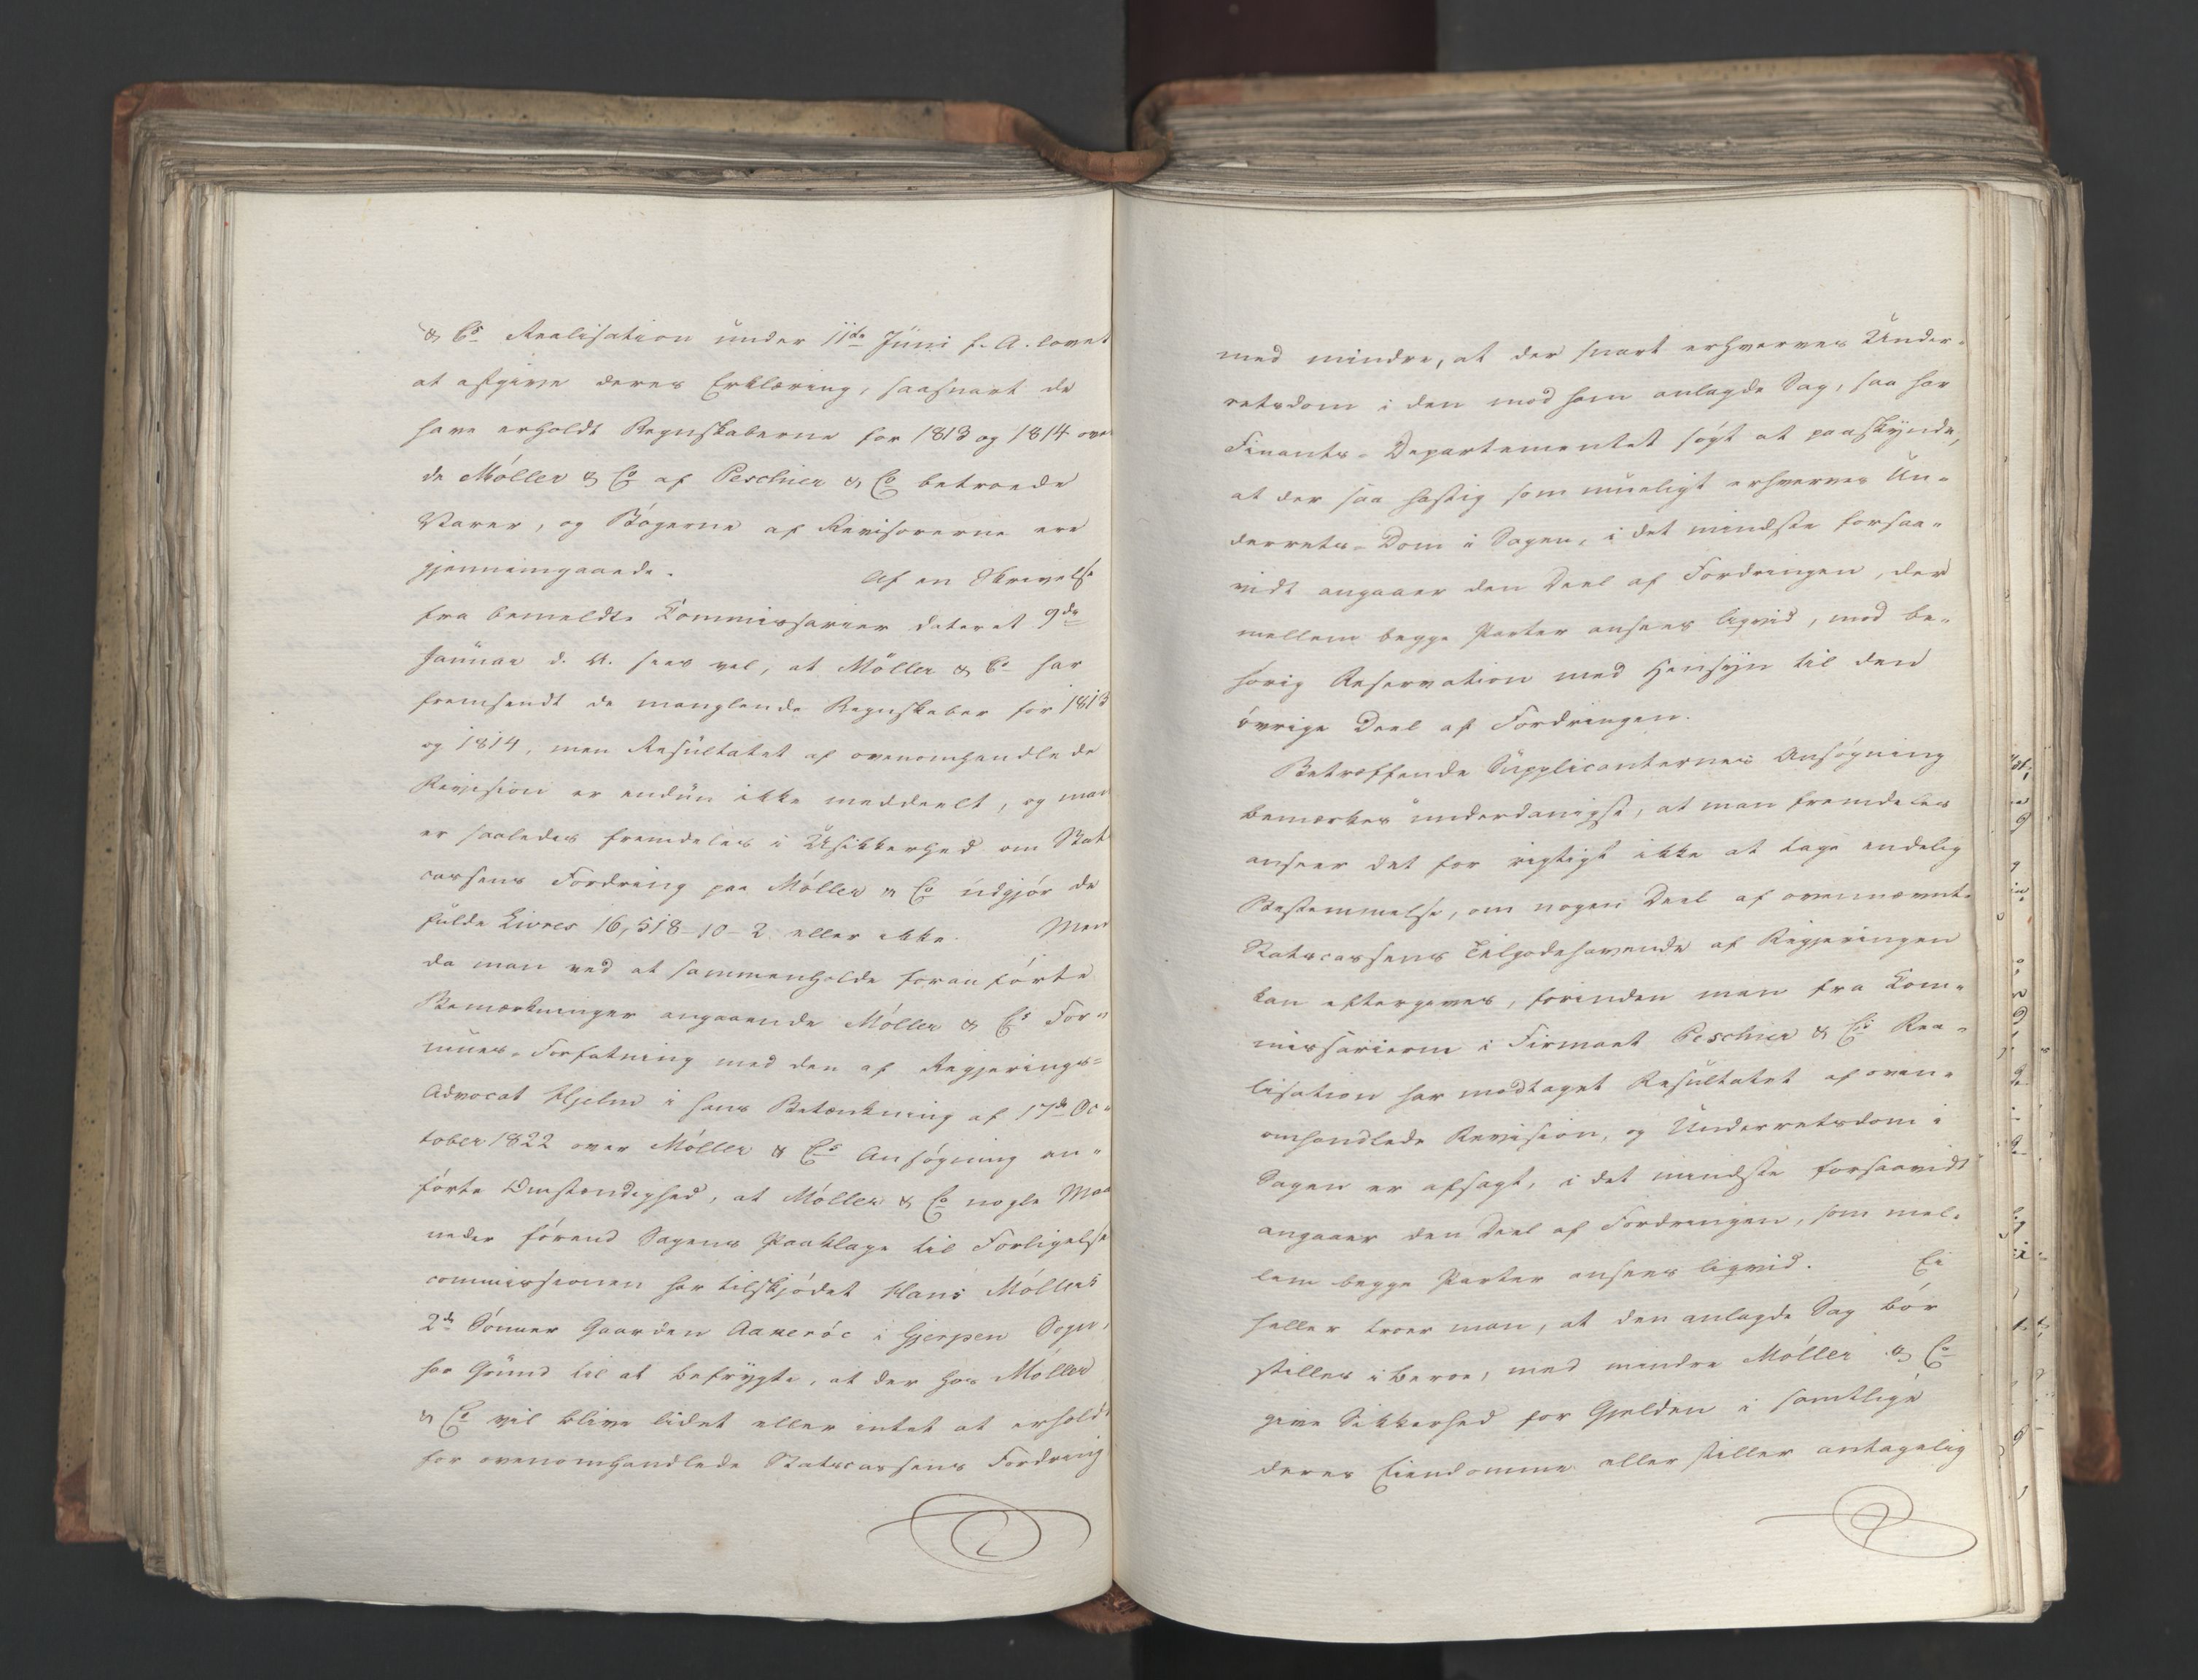 & Cs Realisation under 11te Juni f. A. lovet
at afgive deres Erklæring, saasnart de
have erholdt Regnskaberne for 1813 og 1814 over
de Möller & Co af Peschier & Co betroede
Varer, og Bögerne af Revisorerne ere
gjennemgaaede. Af en Skrivelse
fra bemeldte Commissarier dateret 9de
Januar d. A. sees vel, at Möller & Co har
fremsendt de manglende Regnskaber for 1813
og 1814, men Resultatet af ovenomhandlede
Revision er endnu ikke meddeelt, og man
er saaledes fremdeles i Usikkerhed om Stats
cassens Fordring paa Möller & Co udgjör de
fulde Livres 16,518-10-2 eller ikke. Men
da man ved at sammenholde foranförte
Bemærkninger angaaende Möller & Cs For-
mues-Forfatning med den af Regjerings-
Advocat Hjelm i hans Betænkning af 17de Oc-
tober 1822 over Möller & Cs Ansögning an-
förte Omstændighed, at Möller & Co nogle Maa
neder förend Sagens Paaklage til Forligelses
commissionen har tilskjödet Hans Möllers
2de Sönner Gaarden Aakeröe i Gjerpen Sogn,
har Grund til at befrygte, at der hos Möller
& Co vil blive lidet eller intet at erholde
for ovenomhandlede Statscassens Fordring
med mindre, at der snart erhverves Under-
retsdom i den mod ham anlagde Sag, saa har
Finants-Departementet sögt at paaskynde,
at der saa hastig som mueligt erhverves Un-
derrets-Dom i Sagen, i det mindste forsaa-
vidt angaaer den Deel af Fordringen, der
mellem begge Parter ansees liqvid, med be-
hörig Reservation med Hensyn til den
övrige Deel af Fordringen.
Betræffende Supplicanternes Ansögning
bemærkes underdanigst, at man fremdeles
anseer det for rigtigst ikke at tage endelig
Bestemmelse, om nogen Deel af ovennævnte
Statscassens Tilgodehavende af Regjeringen
kan eftergives, forinden man fra Com-
missarierne i Firmaet Peschier & Cs Rea-
lisation har modtaget Resultatet af oven-
omhandlede Revision, og Underretsdom i
Sagen er afsagt, i det mindste forsaavidt
angaaer den Deel af Fordringen, som mel-
lem begge Parter ansees liqvid. Ei
heller troer man, at den anlagde Sag bör
stilles i Beroe, med mindre Möller & Co
give Sikkerhed for Gjelden i samtlige
deres Eiendomme eller stiller antagelig